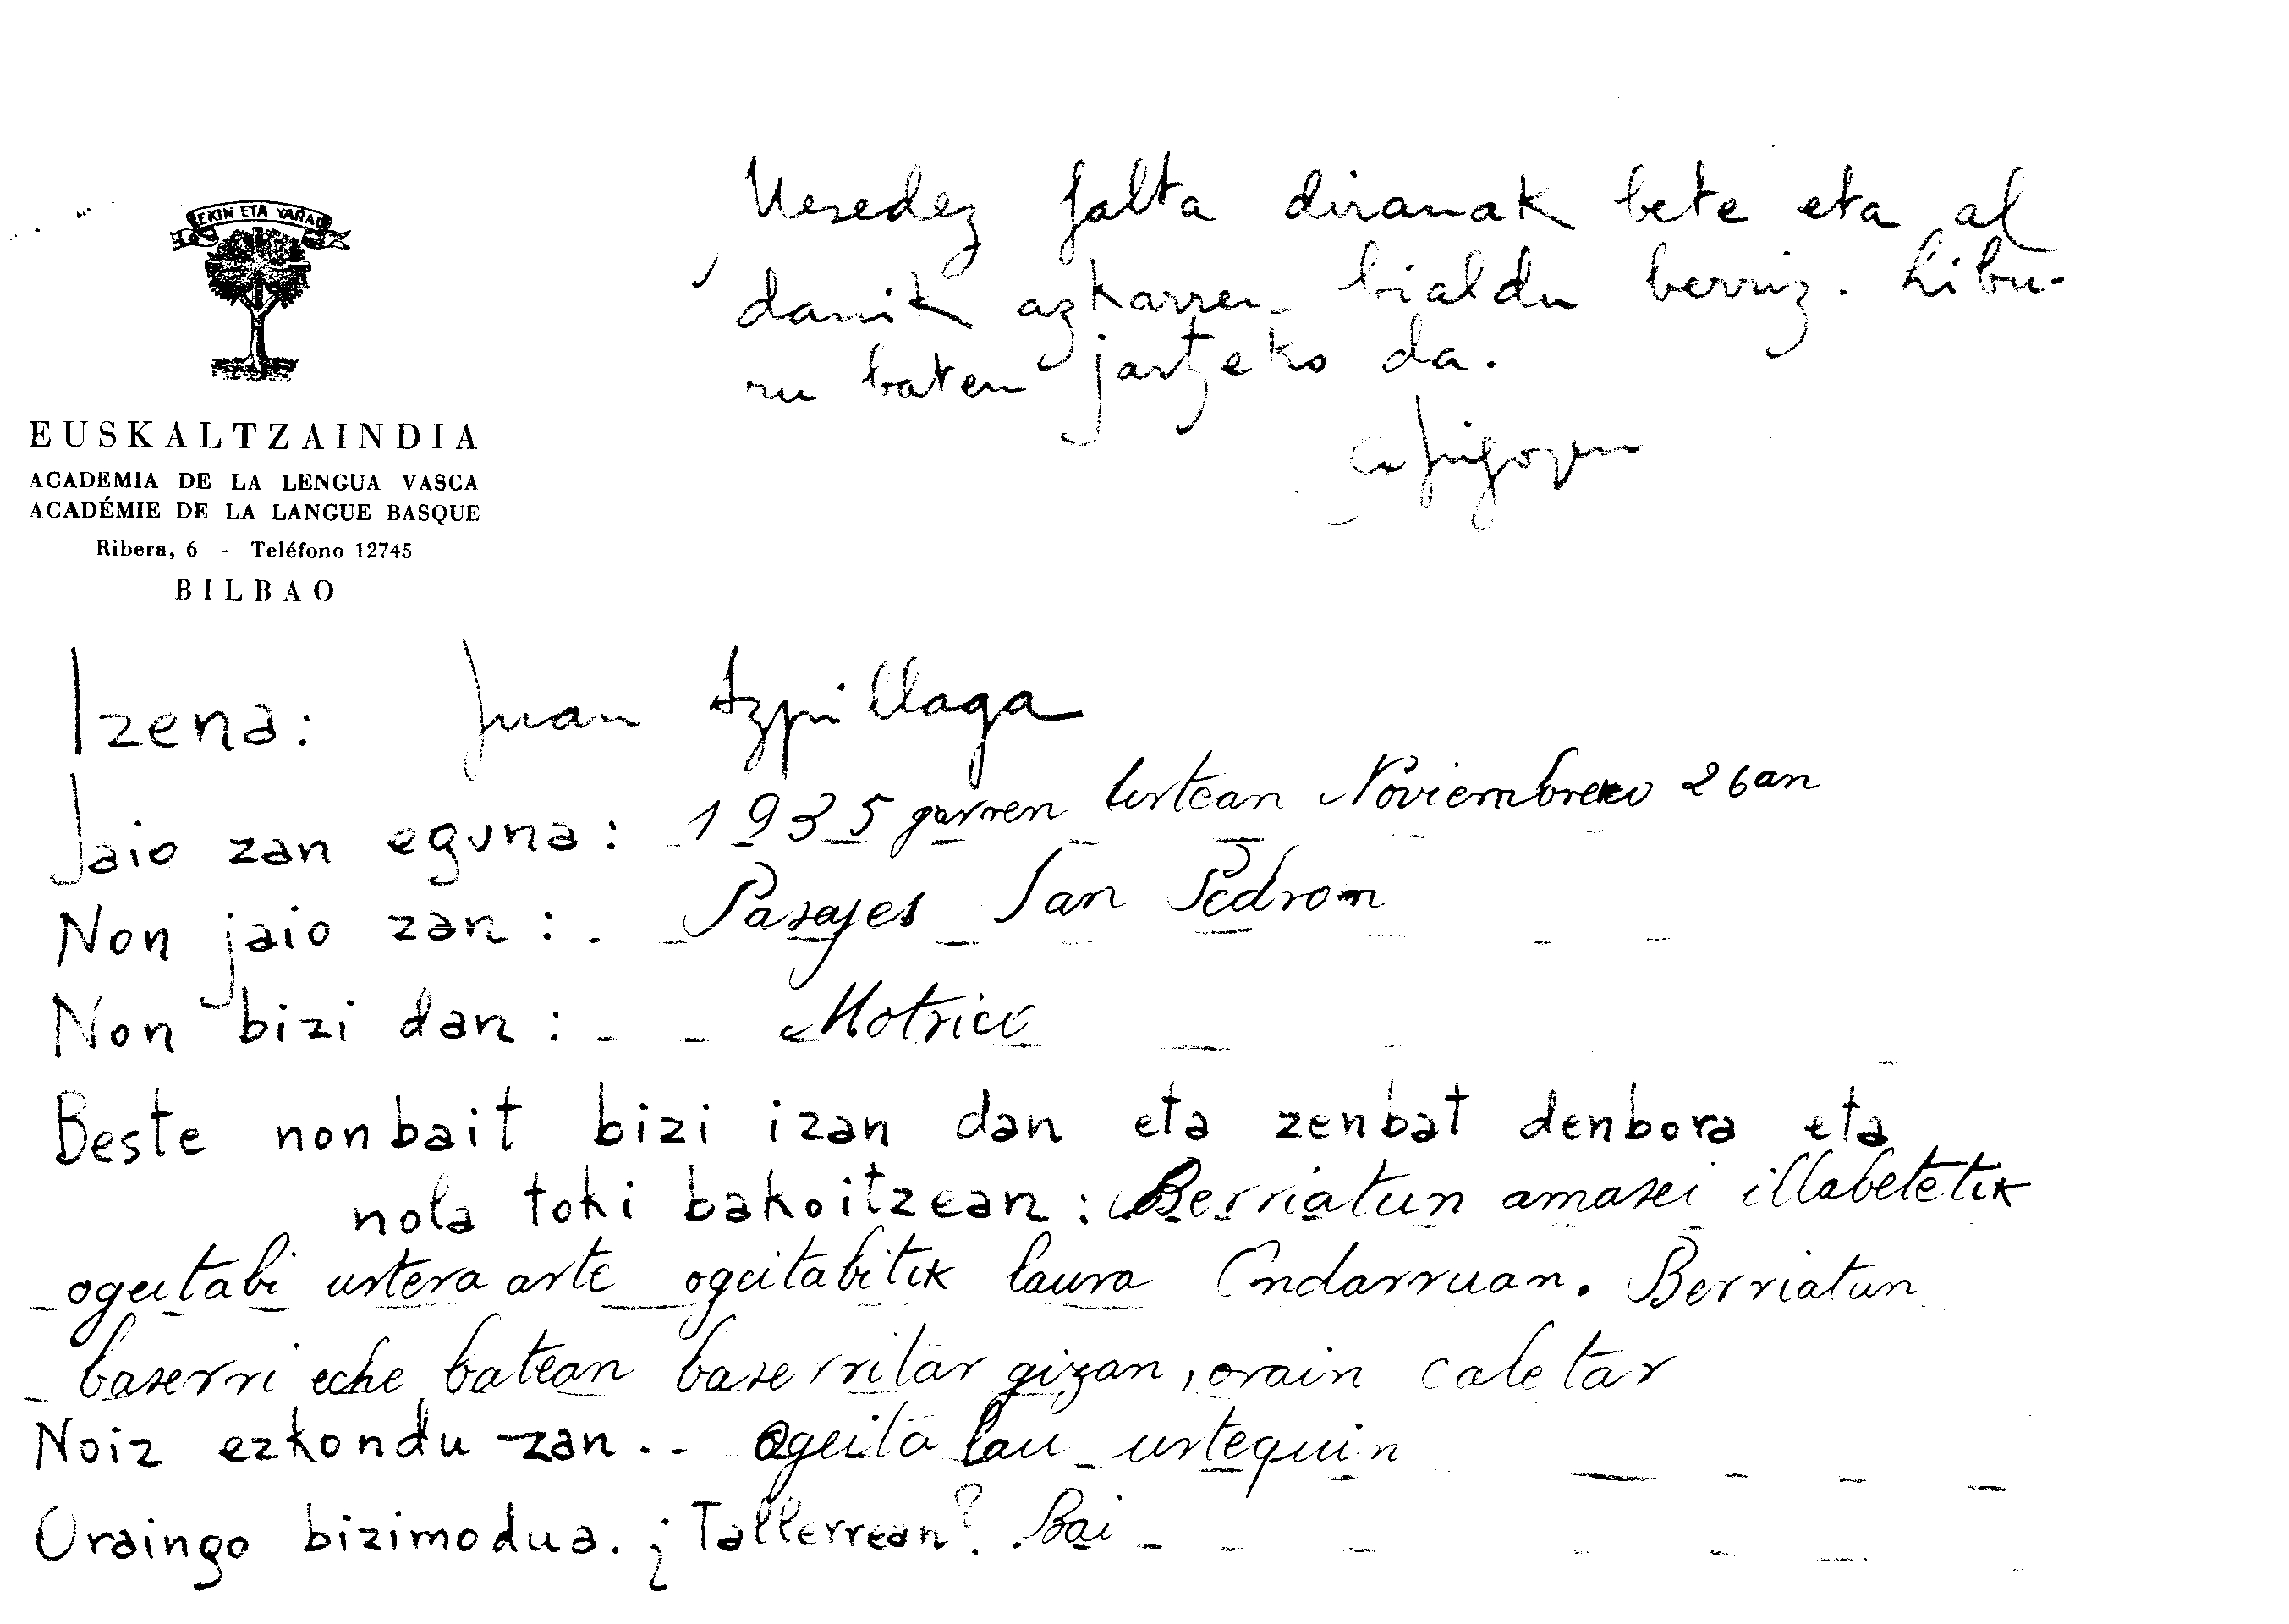 Mesedez falta diranak bete eta al
danik azkarren bialdu berriz. Libu-
ru baten jartzeko da.
EKIN ETA YARAI
EUSKALTZAINDIA
ACADEMIA DE LA LENGUA VASCA
ACADÉMIE DE LA LANGUE BASQUE
Ribera, 6 - Teléfono 12745
BILBAO
Izena: Juan Azpillaga
Jaio zan eguna: 1935 garren urtean Noviembreko 26an
Non jaio zan: Pasajes San Pedron
Non bizi dan: Motrico
Beste nonbait bizi izan dan eta zenbat denbora eta
nola toki bakoitzean: Berriatun amasei illabetetik
ogeitabi urtera arte ogeitabitik laura Ondarruan. Berriatun
baserri eche batean baserritar gizan, orain caletar
Noiz ezkondu zan.. ogeita lau urtequin
Oraingo bizimodua. ¿Tallerrean? Bai